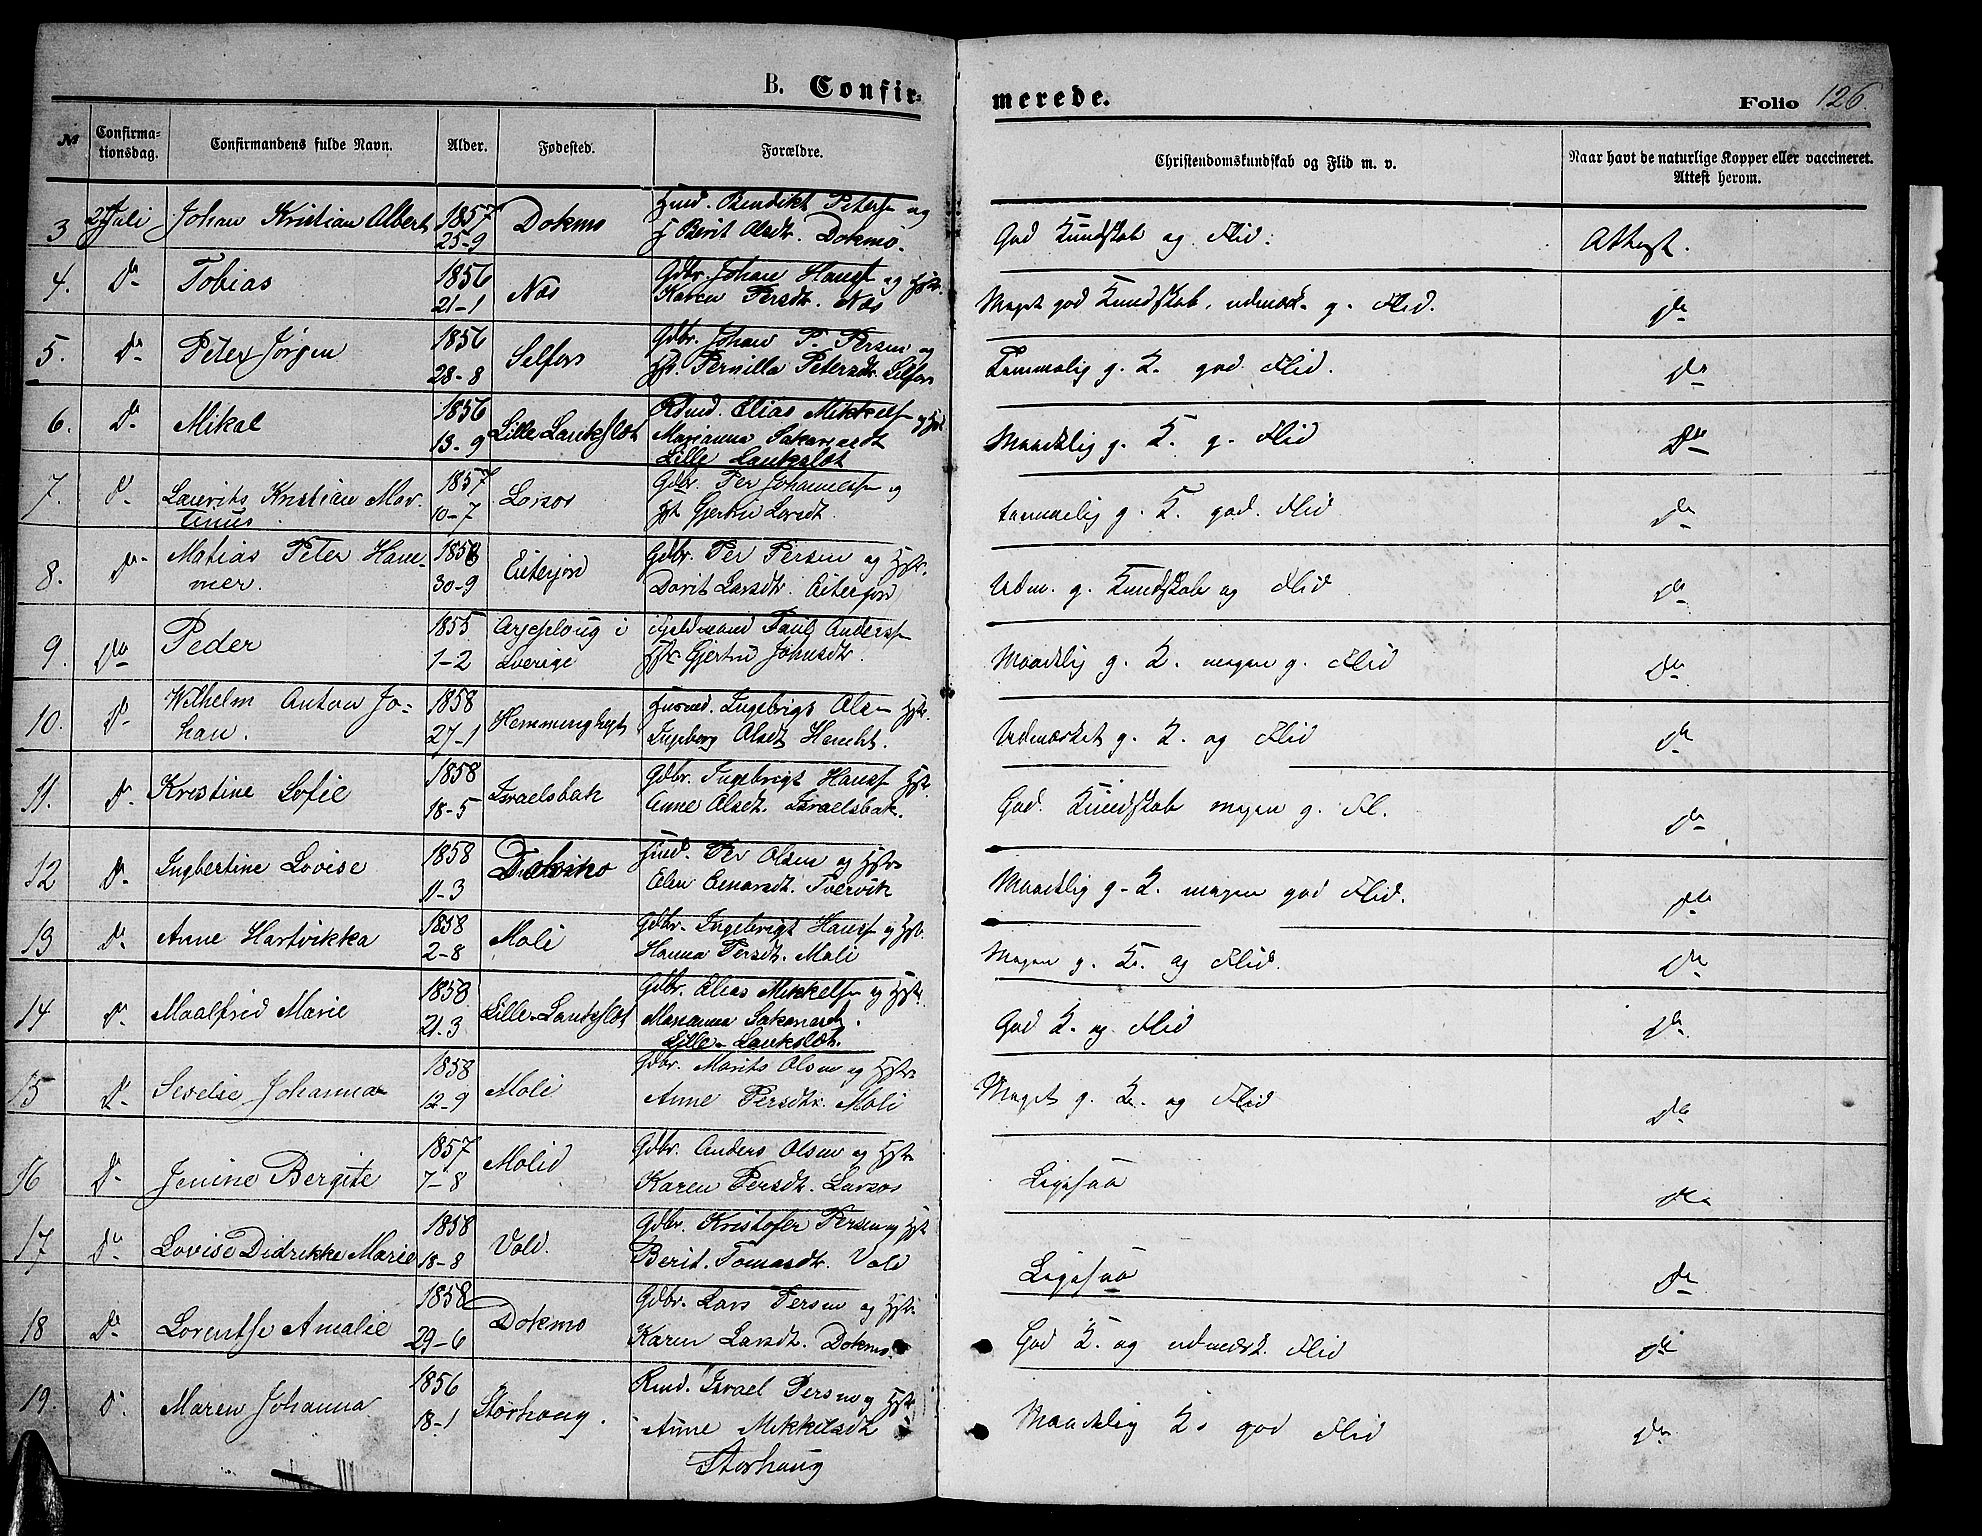 B. Confir-
merede.
Folio 126.
№
Confirma-
tionsdag.
Confirmandens fulde Navn.
Alder.
Fødested.
Forældre.
Christendomskundskab og Flid m. v.
Naar havt de naturlige Kopper eller vaccineret.
Attest herom.
3 Juli Johan Kristian Albert 1857 Dokmo Bendikt Peters og
25-9 Berit Olsdt. Dokmo.
God Kundskab og Flid. Attest.
4. Do Tobias 1856 Næs Gdbr. Johan Hans og
21-1 Karen Persdt. Næs
Meget god Kundskab. udmærk. g. Flid. do
5. Do Peter Jørgen 1856 Selfors Gdbr. Johan P. Persen og
28-8 Pernilla Petersdt. Selfors
Temmelig g. K. god Flid. do
6. Do Mikal 1856 Lille Laukslet Elias Mikkels og
13-9 Marianna Sakariasdt
Lille Laukslet
Maadelig g. K. g. Flid Do
7. Do Laurits Kristian Mar- 1857 Larsos Gdbr. Per Johannes og
tinus. 10-7 Gjertru Larsdt.
temmelig g. K. god. Flid do
8. Do Matias Peter Ham- 1856 Eiterjord Gdbr. Per Persen og Hstr.
mer. 30-9 Dorit Larsdt. Eiterjord
Udm. g. Kundskab og Flid do
9. Do Peder 1855 Arjeploug i Fjeldmand Paul Anders
1-2 Sverige Gjertru Johnsdt.
Maadelig g. K. megen g. Flid do
10. Do Wilhelm Anton Jo- 1858 Hemminghyt Ingebrigt Olsen Hstr.
han. 27-1 Ingeborg Olsdt
Udmærket g. K. og Flid do
11. Do Kristine Sofie 1858 Israelsbak Gdbr. Ingebrigt Hans Hstr.
18-5 Anne Olsdt. Israelsbak.
God. Kundskab megen g. Fl. do
12 Do Ingbertine Lovise 1858 Per Olsen og Hstr
11-3 Elen Tvervik
Maadelig g. K. megen god Flid. do
13 Do Anne Hartvikka 1858 Moli Gdbr. Ingebrigt Hans og Hstr.
2-8 Hanna Persdt. Moli
Megen g. K. og Flid. do
14 Do Maalfrid Marie 1858 Lille-Laukslet Gdbr. Elias Mikkels og Hstr
21-3 Marianna
Lille-Laukslet.
God K. og Flid do
15 Do Sevelse Johanna 1858 Moli Gdbr. Morits Olsen og Hstr.
12-9 Anne Persdtr. Moli
Meget g. K. og Flid do
16 Do Jenine Bergite 1857 Molid Gdbr. Anders Olsen og Hstr
7-8 Karen Persdt. Larsos
Ligesaa do
17 Do Lovise Didrikke Marie 1858 Vold. Gdbr. Kristofer Persen og Hstr
18-8 Berit. Tomasdtr. Vold
Ligesaa do
18 Do Lorentse Amalie 1858 Dokmo Gdbr. Lars Persen og Hstr.
29-6 Karen Larsdt. Dokmo.
God K. og udmærk. Flid do
19. Do Maren Johanna 1856 Storhaug. Israel Persen og Hstr
18-1 Anne Mikkelsdt
Storhaug
Maadelig K. god Flid do